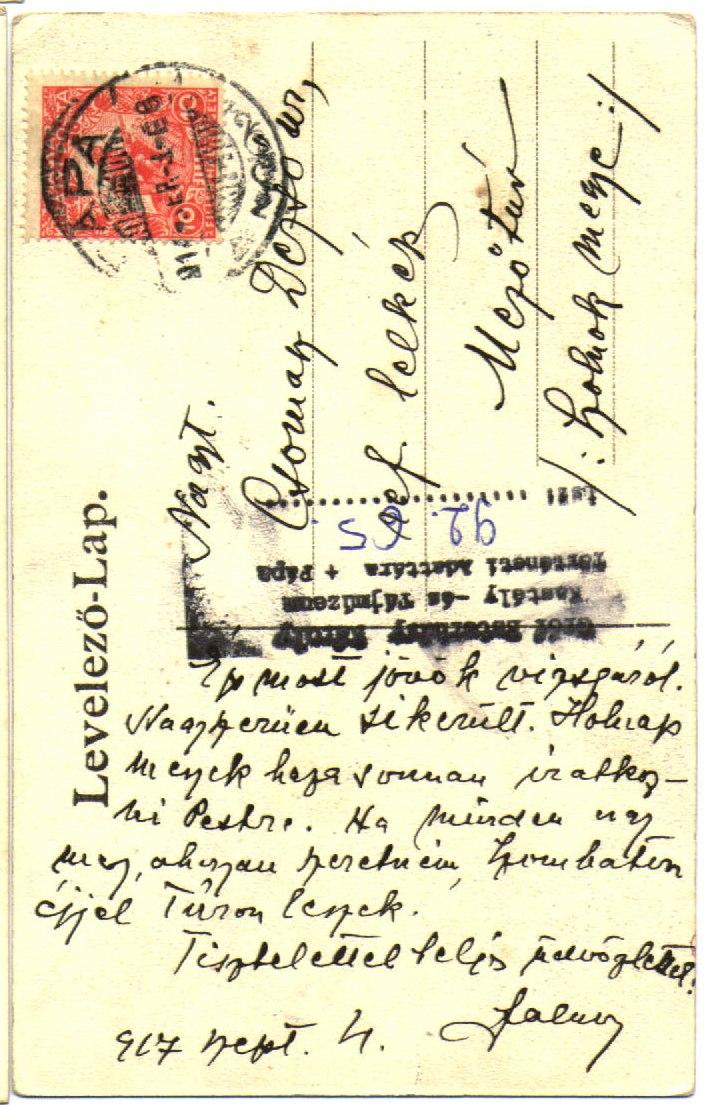 Levelező-Lap.
PÁPA
Nagyt.
Csomasz Dezső ur,
ref. lelkész
Mezőtúr
/: Szolnok megye :/
Gróf Esterházy Károly
Kastély -és Tájmúzeum
Történeti Adattára + Pápa
92.
Ép most jövök vizsgáról.
Nagyszerüen sikerült. Holnap
megyek haza s onnan iratkoz-
ni Pestre. Ha minden ugy
megy, ahogyan szeretném, szombaton
éjjel Túron leszek.
Tisztelettel teljes üdvözlettel:
917 szept. 4.